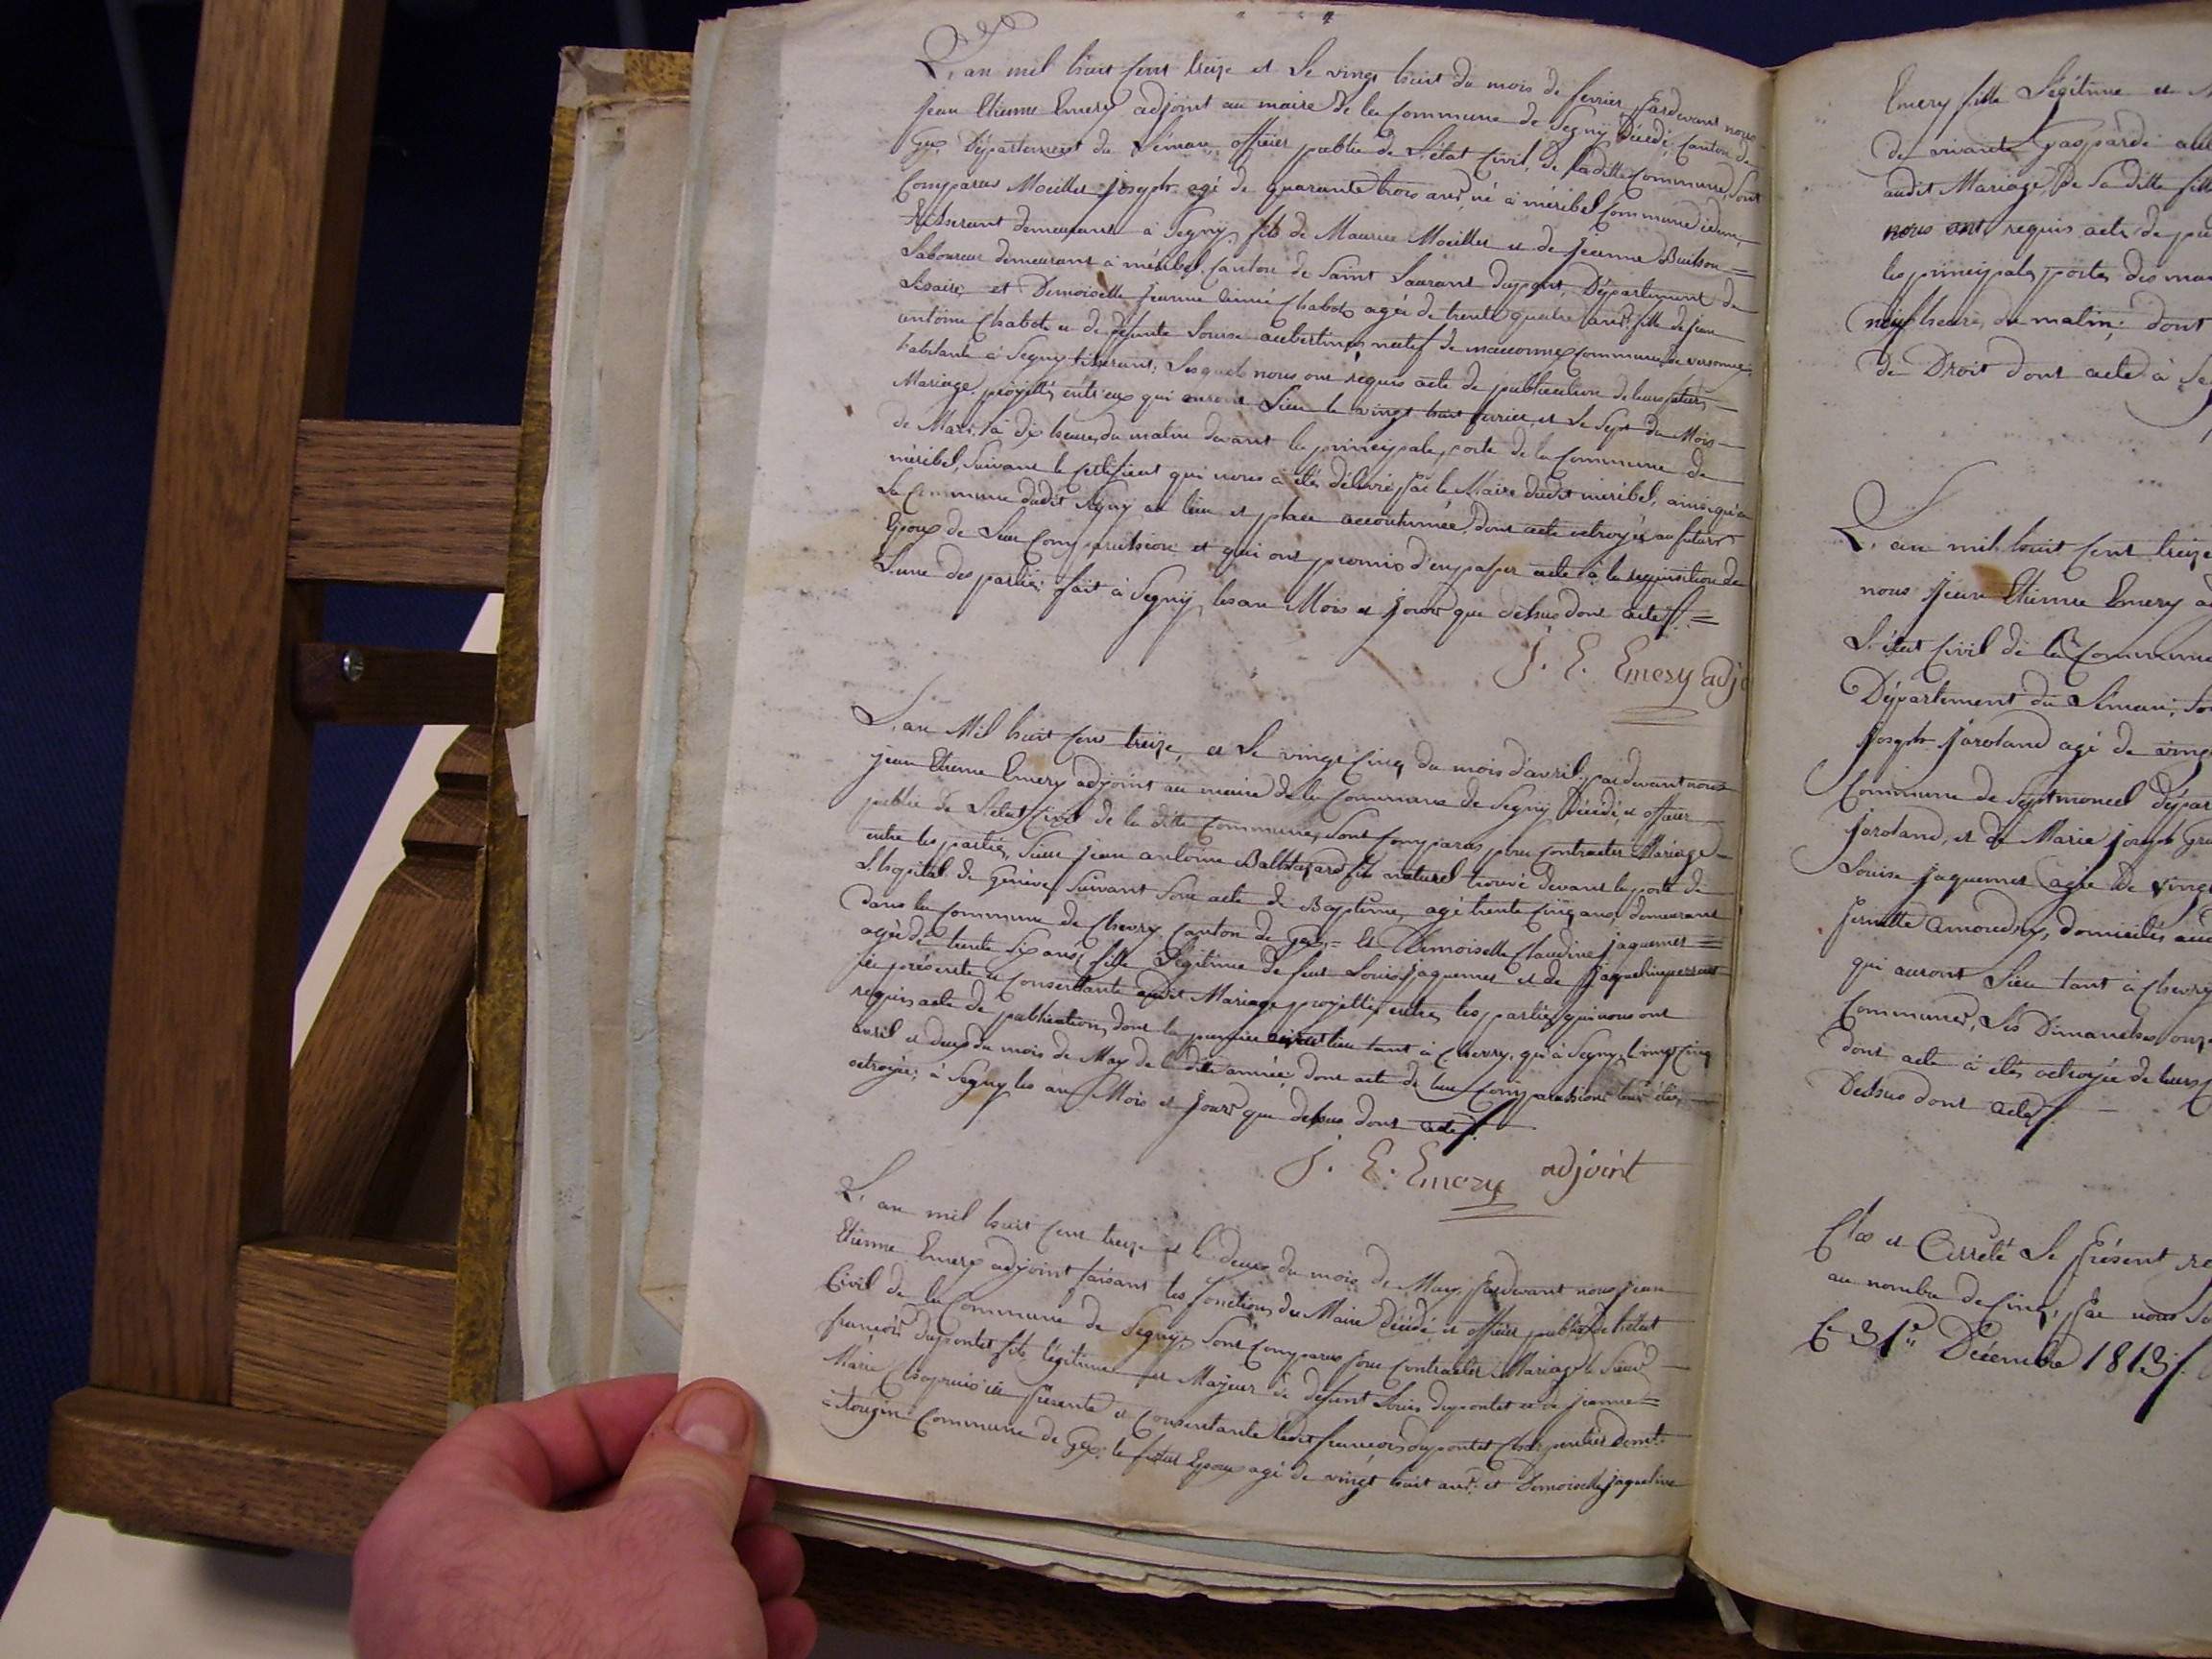 L'an mil huit cent treize et le vingt huit du mois de fevrier, pardevant nous
jean Etienne Emery adjoint au maire de la Commune de Segny Décédé, Canton de
Gex, Département du Léman, officier public de L'état Civil, de ladille Commune, Sont
Comparus Moillet joseph agé de quarante trois ans, né à méribel Commune idem,
tisserant demeurant à Segny, fils de Maurice Moillet et de jeanne Buisson =
Laboureur demeurant à méribel, Canton de Saint Laurant dupont, Département de
Lisaire, et Demoiselle jeanne aimé Chabot agée de trente quatre ans, fille de jean
antoine Chabot et de défunte Louise aubertin natif de Commune de versonnex
habitante à Segny tisserant; Lesquels nous ont réquis acte de publication de leurs futurs
Mariage projettés entr'eux qui auront Lieu le vingt huit fevrier, et Le Sept du Mois
de Mars, à dix heures du matin devant la principale porte de la Commune de
méribel, Suivant le Certificat qui nous à étés délivré par le Maire dudit méribel, ainsi qu'en
La Commune dudit Segny au lieu et place accoutumée, dont acte octroyés au futurs
Epoux de Leur Comparution et qui ont promis d'en passer acte à la requisition de
L'une des parties fait à Segny, les an Mois et jours que dessus dont acte =
J. E. Emery adj
L'an Mil huit Cens treize, et Le vingt Cinq du mois d'avril, pardevant nous
jean Etienne Emery adjoint au maire de la Commune de Segny Décédé, et officier
public de L'état Civil de la ditte Commune, Sont Comparus pour Contracter Mariage
entre les parties, Sieur jean antoine Balthazard fils naturel trouvé devant la porte de
L'hopital de Genève Suivant Son acte de Baptême, agé trente Cinq ans, demeurant
dans la Commune de Chevry, Canton de Gex, = Et Demoiselle Claudine jaquemet =
agée de trente Six ans, fille Légitime de feut Louis jaquemet et de
ici présente et Consentante audit Mariage projetté, entre les parties qui nous ont
requis acte de publication, dont la premiere lieu tant à Chevry, qu'à Segny, L vingt Cinq
avril et deux du mois de May de la ditte année, dont acte de leur Comparution leur étés
octroyée; à Segny les an Mois et jours que dessus dont acte.
J. E. Emery adjoint
L'an mil huit Cent treize et le deux du mois de May, pardevant nous jean
Etienne Emery adjoint faisant les fonctions du Maire Décédé, et officier public de L'état
Civil de la Commune de Segny, Sont Comparus pour Contracter Mariage le Sieur
francois Duponte fils légitime et Majeur de défunt Louis duponte et de jeanne =
Marie Chapuis ici présente et Consentante ledit francois duponte Charpentier Demt.
à tougin Commune de Gex, le futur Epoux agé de vingt huit ans, et Demoiselle jaqueline
Emery fille Légitime et
de vivante Gasparde
audit Mariage, de Sa ditte fille
nous ont requis acte de pu
les principales portes des
neuf heures du matin; dont
de Droit dont acte à Se
L'an mil huit Cent treize
nous jean Etienne Emery a
L'état Civil de la Commune
Département du Léman, So
joseph jaroland agé de vingt
Commune de Septmoncel dépar
jaroland, et de Marie joseph Gr
Louise jaquemet agée de vingt
domiciliés au
qui auront Lieu tant à Chevry
Communes, Les Dimanches onze
dont acte à étés octroyée de leurs
Dessus dont acte
Clos et Arrêté Le présent re
au nombre de Cinq, par nous So
Ce 31e. Décembre 1813